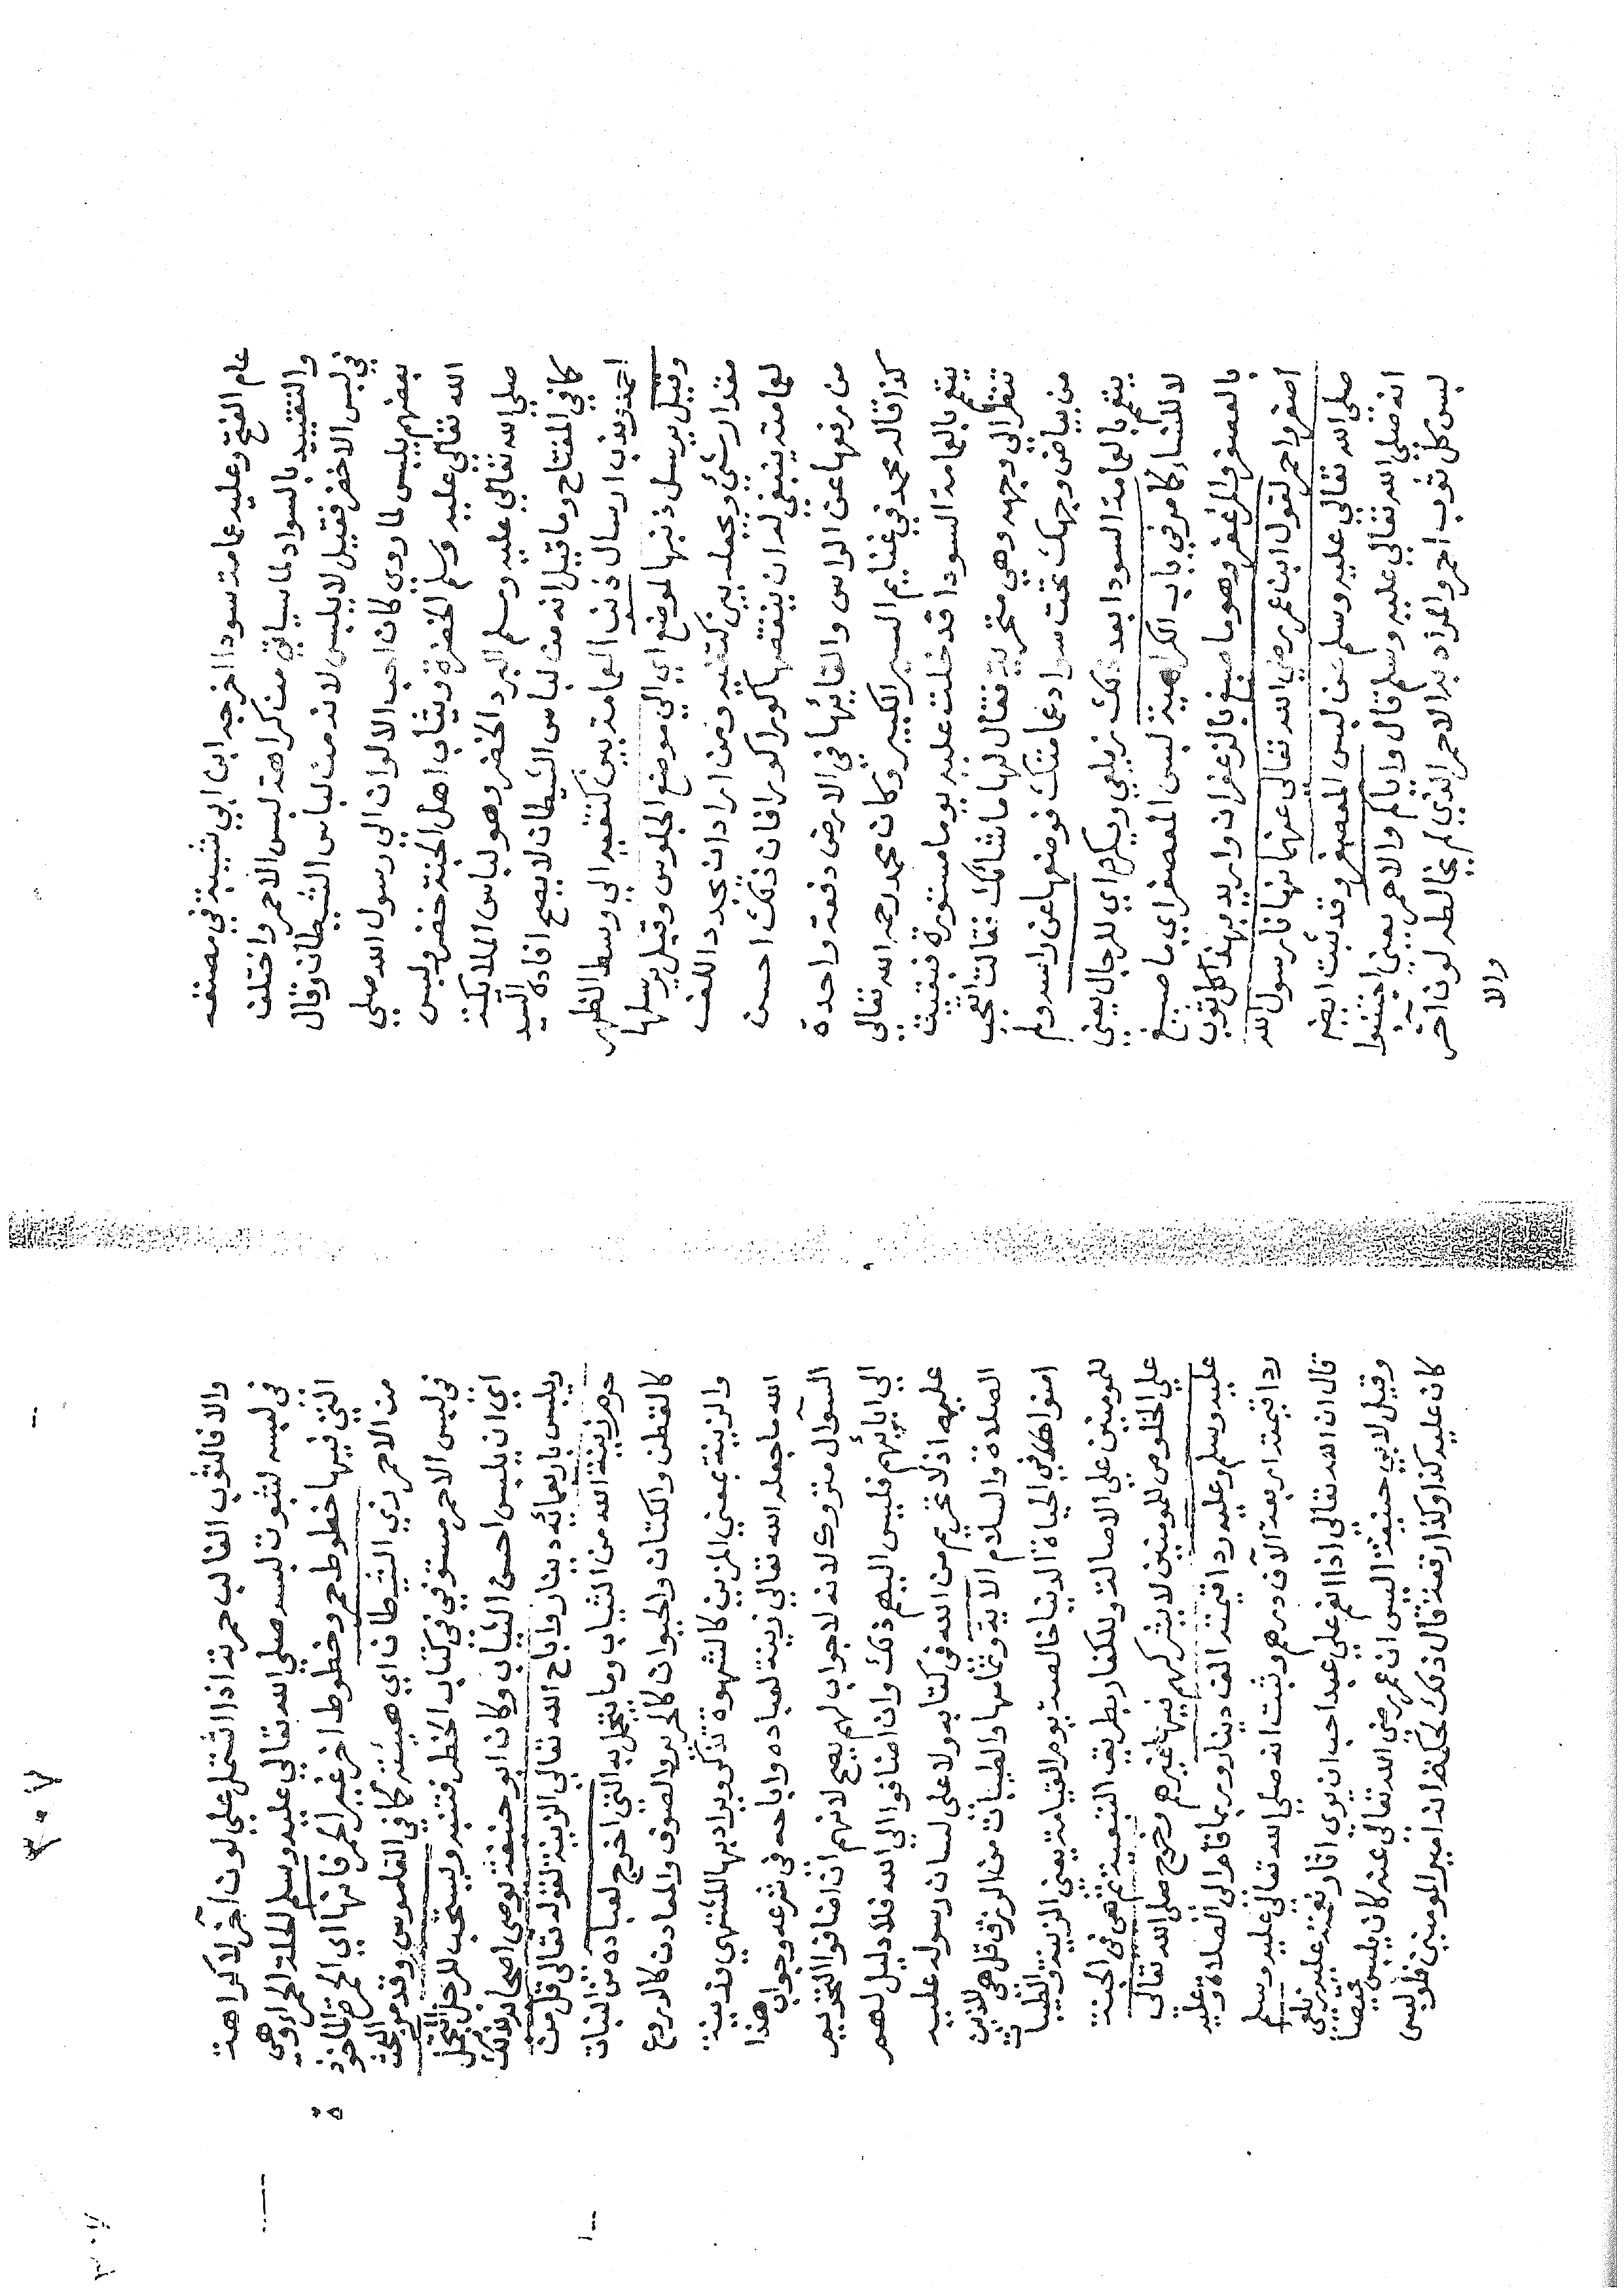 عام الفتح وعليه عمامة سودا اخرجه ابن ابي شيبة في مصنفه
والتقييد بالسواد لما سياتي من كراهة لبس الاحمر واختلف
في لبس الاخضر فقيل لا يلبس لانه من لباس الشيطان وقال
بعضهم يلبس لما روي كان احب الالوان الي رسول الله صلي
الله تعالي عليه وسلم الخضرة وثياب اهل الجنة خضر ولبس
صلي الله تعالي عليه وسلم البرد الخضر وهو لباس الملايكة
كما في المفتاح وما قيل انه من لباس الشيطان لا يصح افاده السيد
احمد وندب ارسال ذنب العمامة بين كتفيه الي وسط الظهر
وقيل يرسل ذنبها لموضع اي الي موضع الجلوس وقيل يرسلها
مقدار شئ ويجعله بين كتفيه ومن اراد ان يجدد اللف
لعمامته ينبغي له ان ينقضها كورا كورا فان ذلك احسن
من رفعها عن الراس والقائها في الارض دفعة واحدة
كذا قاله محمد في غنايم السير الكبير وكان محمد رحمه الله تعالي
يتعم بالعمامة السودا فدخلت عليه يوما مستورة فبقيت
تنظر الي وجهه وهي متحرية فقال لها ما شانك فقالت اتعجب
من بياض وجهك تحت سواد عمامتك فوضعها عن راسه ولم
يتعم بالعمامة السودا بعد ذلك زيلعي ويكره اي للرجال يعني
لا للنساء كما مر في باب الكراهية لبس المعصفر اي ما صبغ
بالعصفر والمزعفر وهو ما صبغ بالزعفران واريد بهذا كل ثوب
اصفر واحمر لقول ابن عمر رضي الله تعالي عنهما نهانا رسول الله
صلي الله تعالي عليه وسلم عن لبس المعصفر وقد ثبت ايضا
انه صلي الله تعالي عليه وسلم قال واياكم والاحمر يعني اجتنبوا
لبس كل ثوب احمر والمراد بذا الاحمر الذي لم يخالطه لون آخر
والا
والا فالثوب الغالب حمرته اذا اشتمل علي لون آخر لا كراهة
في لبسه لثبوت لبسه صلي الله تعالي عليه وسلم الحلة الحمراء وهي
التي فيها خطوط حمر وخطوط اخر غير الحمر فانها اي الحمرة الماخوذ
من الاحمر زي الشيطان اي هيئته كما في القاموس وقد مر البحث
في لبس الاحمر مستوفي في كتاب الحظر فتنبه ويستحب للرجل التجمل
اي ان يلبس احسن الثياب وكان ابو حنيفة يوصي اصحابه بذلك
ويلبس باربعمائة دينار واباح الله تعالي الزينة لقوله تعالي قل من
حرم زينة الله من الثياب وما يتجمل به التي اخرج لعباده من النبات
كالقطن والكتان والحيوان كالحرير والصوف والمعادن كالدروع
والزينة بمعني المزين كالشهوة تذكر ويراد بها المشتهي فزينة
الله ما جعله الله تعالي زينة لعباده واباحه في شرعه وجواب هذا
السؤال متروك لانه لا جواب لهم يصح لانهم ان اضافوا التحريم
الي ابايهم فليس اليهم ذلك وان اضافوا الي الله فلا دليل لهم
عليه اذ لا تحريم من الله في كتابه ولا علي لسان رسوله عليه
الصلاة والسلام الاية وتمامها والطيبات من الرزق قل هي للذين
امنوا في الحياة الدنيا خالصة يوم القيامة يعني الزينة والطيبات
للمومنين علي الاصالة وللكفار بطريق التبعية ثم هي في الجنة
علي الخلوص للمومنين لا يشركهم فيها غيرهم وخرج صلي الله تعالي
عليه وسلم وعليه ردا قيمته الف دينار وربما قام الي الصلاة وعليه
ردا قيمته اربعة آلاف درهم وثبت انه صلي الله تعالي عليه وسلم
قال ان الله تعالي اذا انعم علي عبد احب ان يري اثار نعمته عليه زيلعي
وقيل لابي حنيفة اليس ان عمر رضي الله تعالي عنه كان يلبس قميصا
كان عليه كذا وكذا رقعة قال ذلك لحكمة انه امير المومنين فلو لبس
٣٠٧